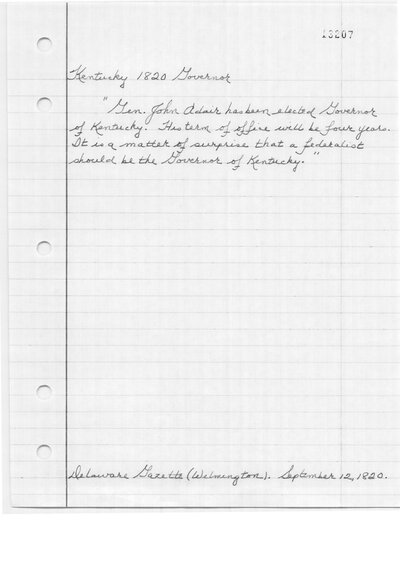 13207
Kentucky 1820 Governor
"Gen. John Adair has been elected Governor
of Kentucky. His term of office will be four years.
It is a matter of surprise that a federalist
should be the Governor of Kentucky."
Delaware Gazette (Wilmington). September 12, 1820.